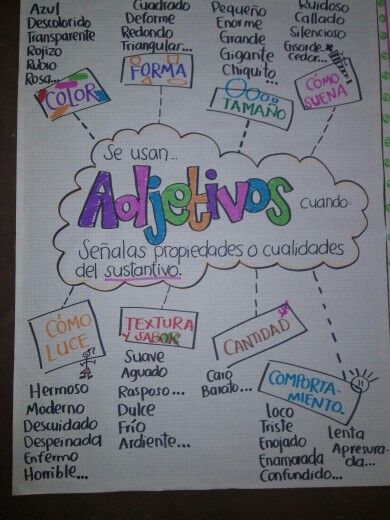 Azul
Descolorido
Transparente
Rojizo
Rubio
Rosa...
COLOR
Cuadrado
Deforme
Redondo
Triangular...
FORMA
Pequeño
Enorme
Grande
Gigante
Chiquito...
TAMAÑO
Ruidoso
Callado
Silencioso
Ensorde-
cedor...
CÓMO
SUENA
Se usan...
Adjetivos cuando
Señalas propiedades o cualidades
del sustantivo.
CÓMO
LUCE
Hermoso
Moderno
Descuidado
Despeinada
Enfermo
Horrible...
TEXTURA
Y SABOR
Suave
Aguado
Rasposo...
Dulce
Frío
Ardiente...
CANTIDAD
Caro
Barato...
COMPORTA-
MIENTO.
Loco
Triste
Enojado
Enamorada
Confundido...
Lenta
Apresura-
da...